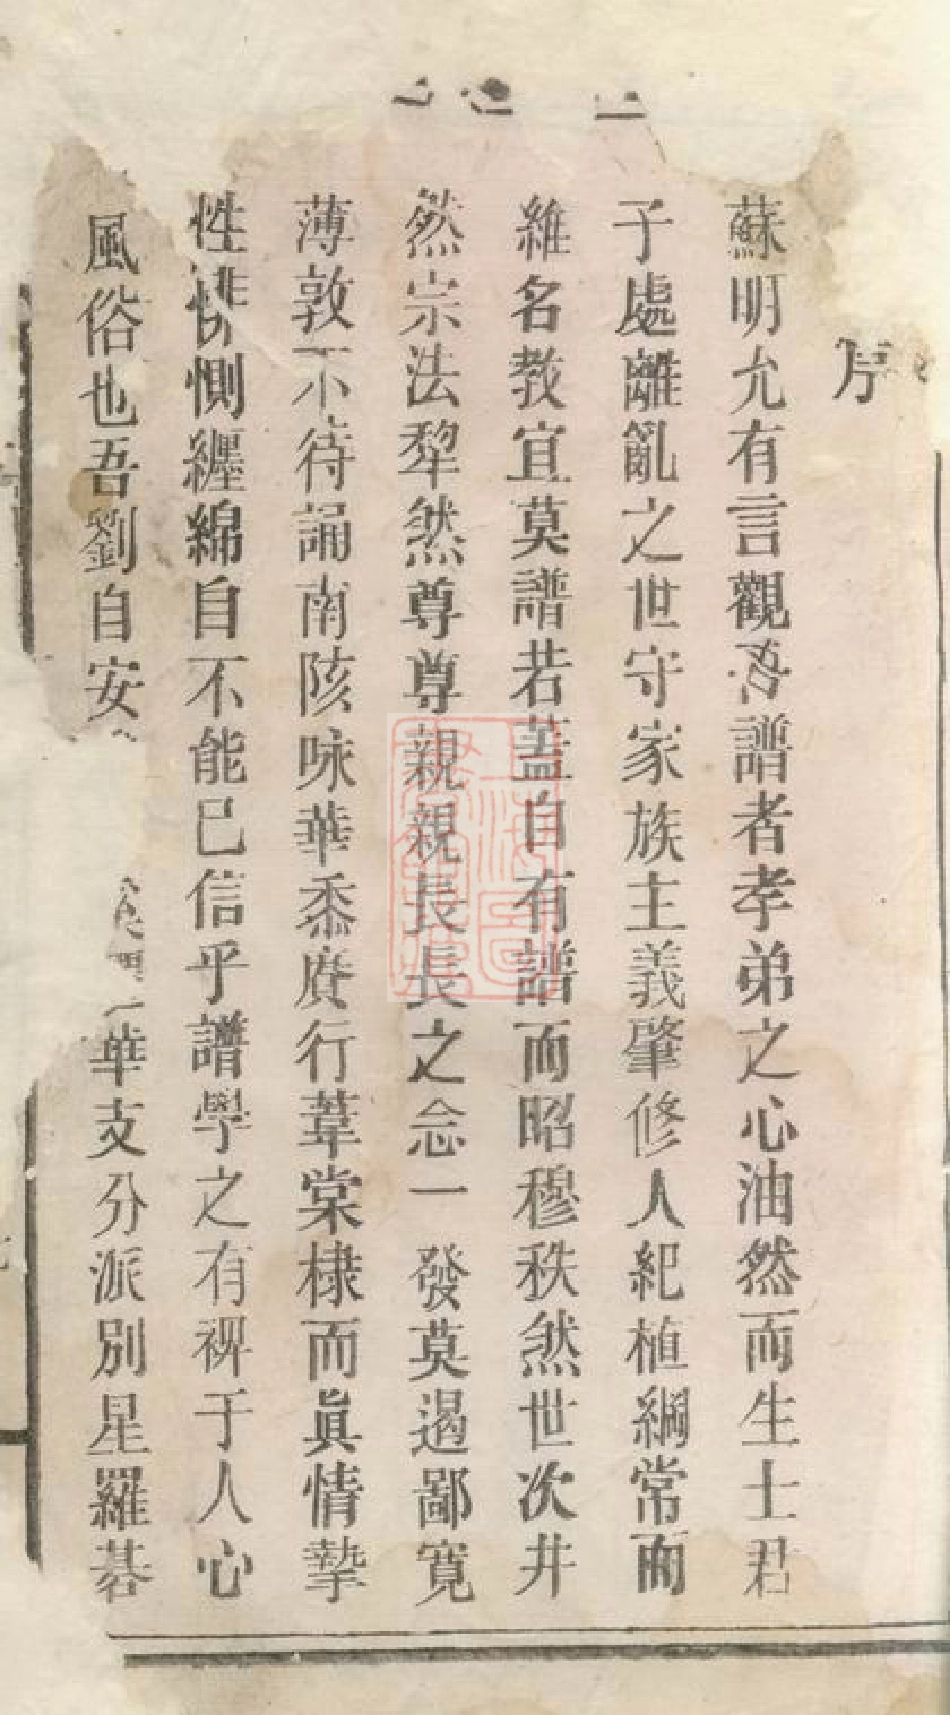 序
蘇明允有言觀吾譜者孝弟之心油然而生士君
子處離亂之世守家族主義肇修人紀植綱常而
維名教宜莫譜若蓋自有譜而昭穆秩然世次井
然宗法犂然尊尊親親長長之念一發莫遏鄙寬
薄敦不待誦南陔咏華黍賡行葦棠棣而眞情摯
性悱惻纏綿自不能已信乎譜學之有裨于人心
風俗也吾劉自安
華支分派別星羅碁